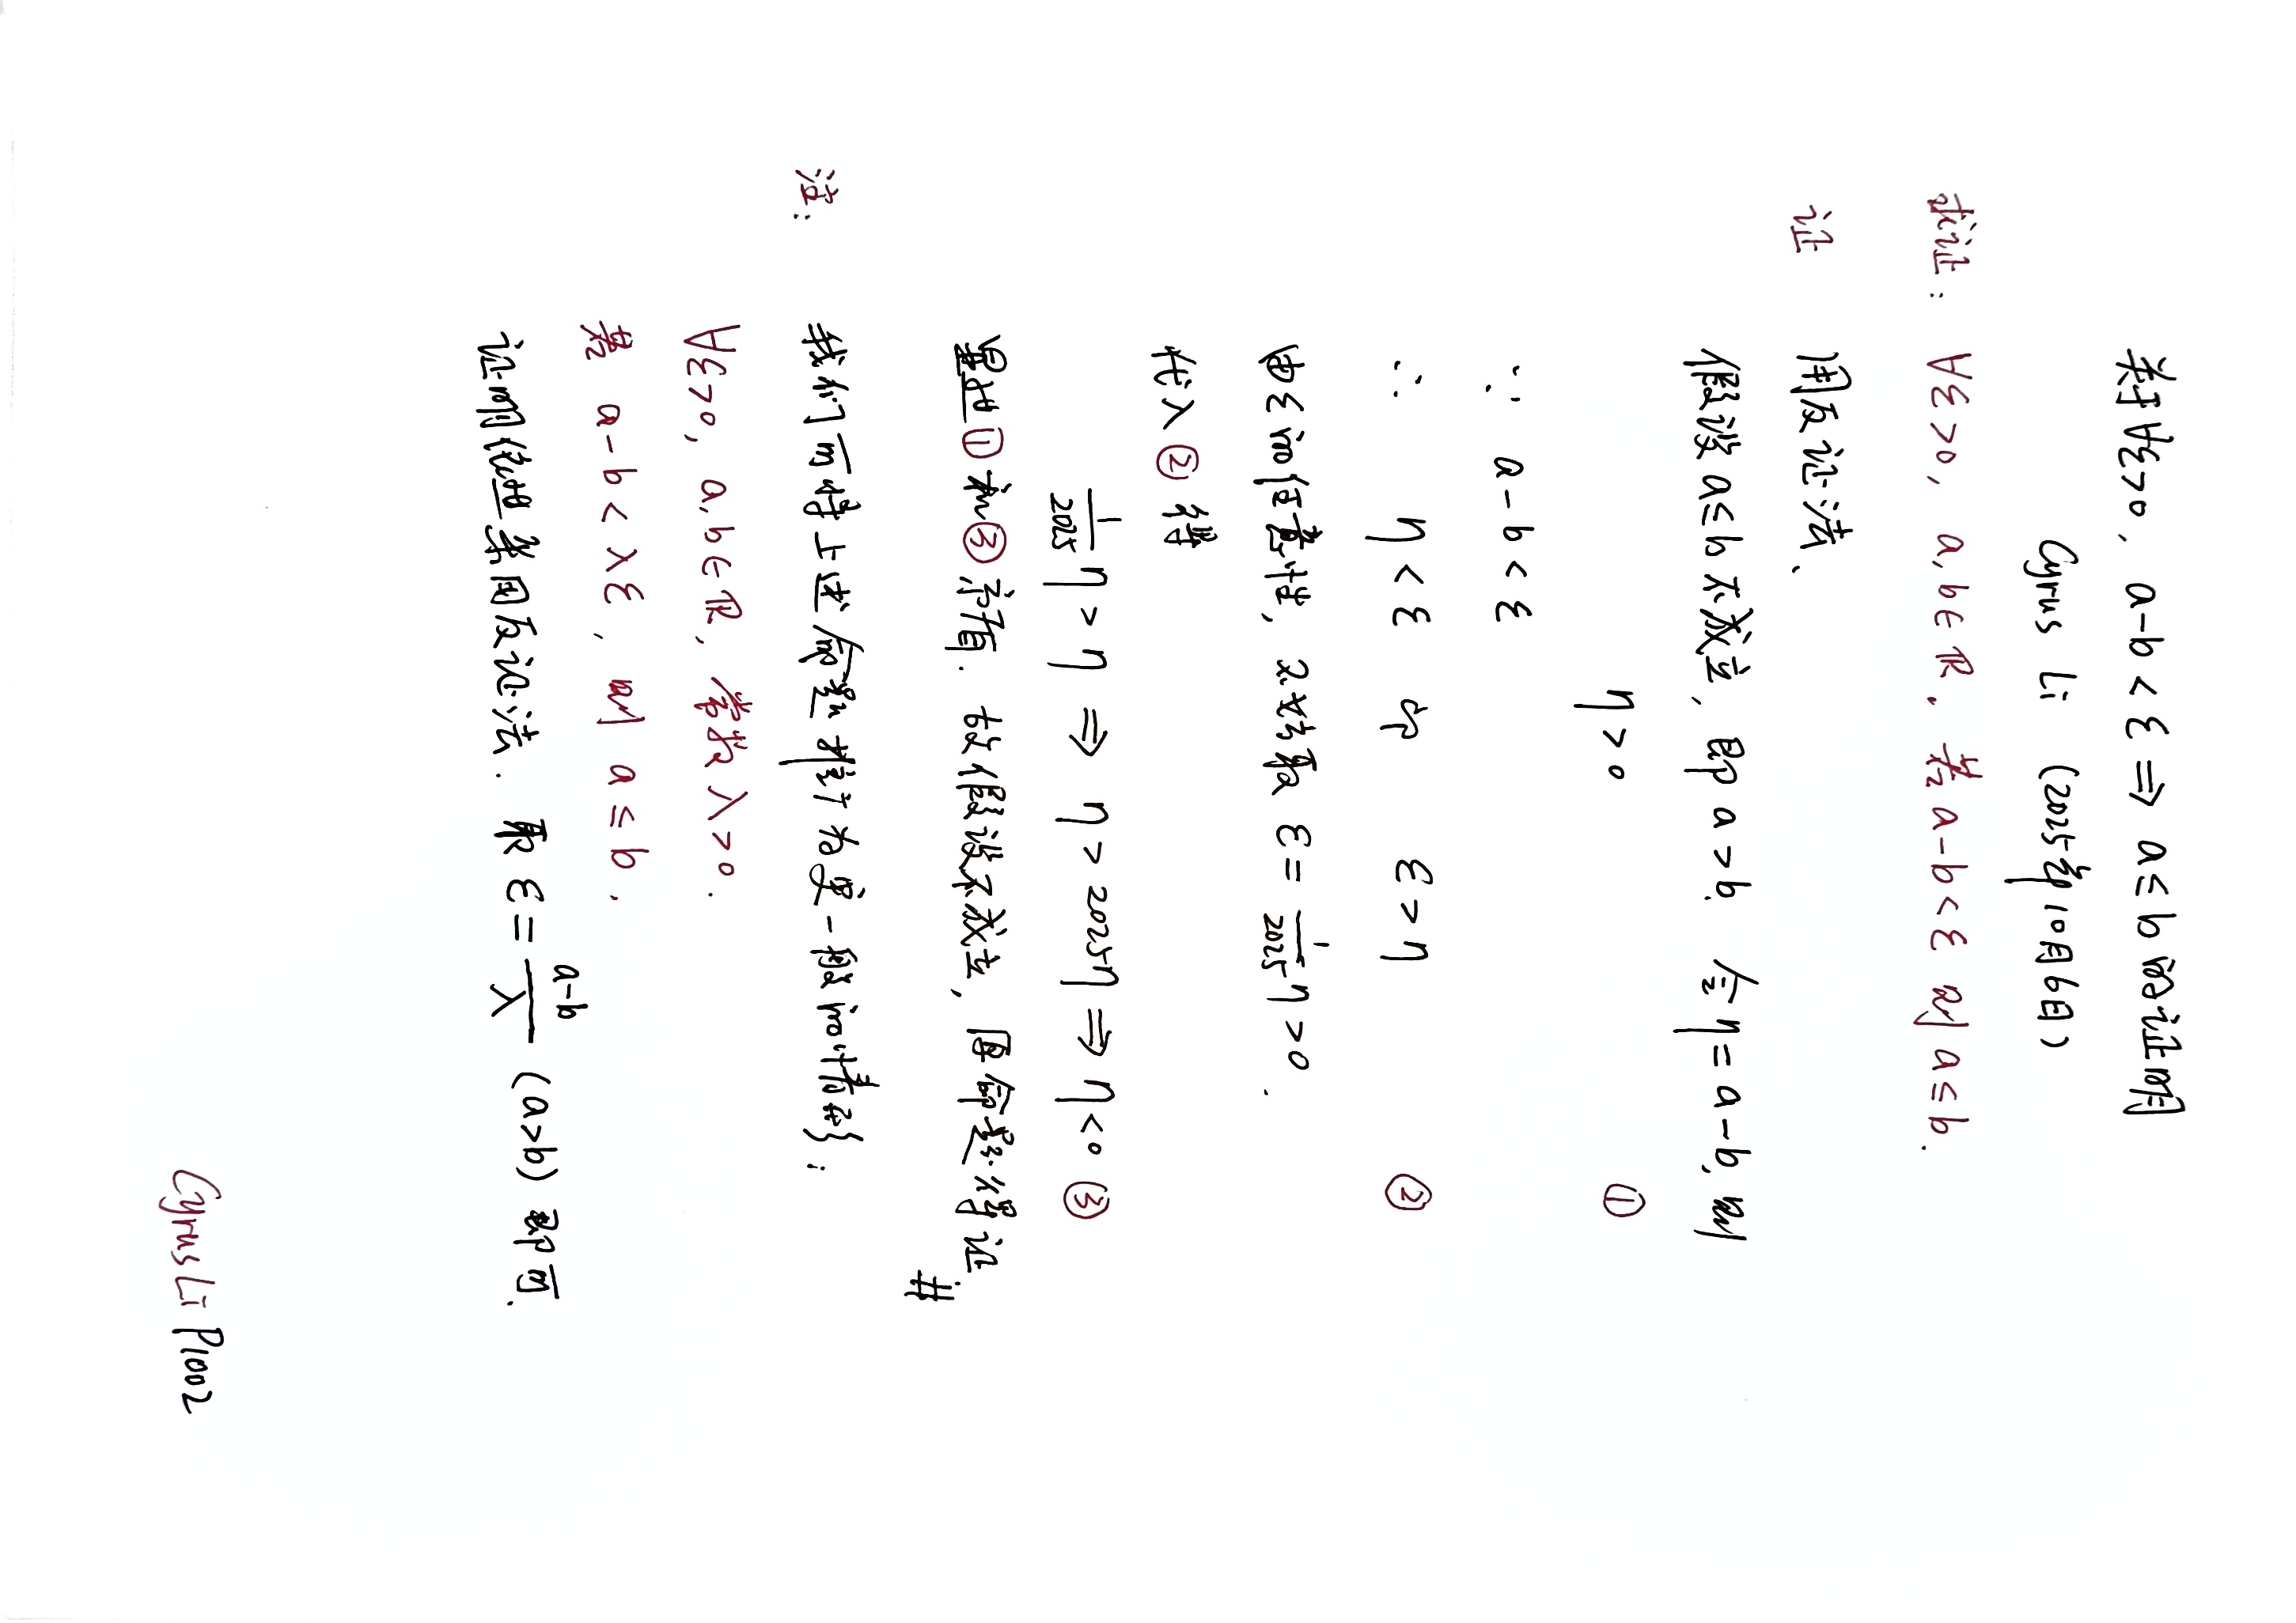 关于∀ε>0, a-b<ε⇒a≤b的证明
Cyrus Li (2025年10月6日)
求证: ∀ε>0, a,b∈ℝ. 若a-b<ε 则a≤b.
证 用反证法.
假设a≤b不成立, 即a>b. 令η=a-b, 则
η>0 ①
∵ a-b<ε
∴ η<ε 即 ε>η ②
由ε的任意性, 不妨取 ε=1/2025 η>0.
代入②得
1/2025 η>η ⇒ η>2025η ⇒ η<0 ③
①和③矛盾. 故假设不成立, 原命题得证.
#
注: 我们可将上述命题推广为更一般的情形:
∀ε>0, a,b∈ℝ, 常数λ>0.
若 a-b<λε, 则 a≤b.
证明使用反证法. 取 ε=(a-b)/λ (a>b) 即可.
Cyrus Li P1002